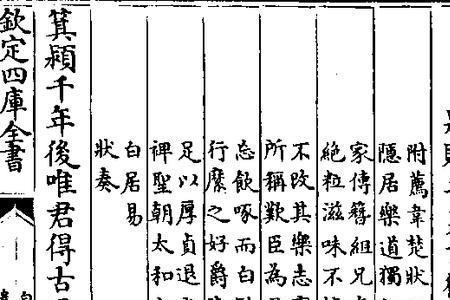 附薦韋楚狀
隱居樂道獨
家傳簪組兄
絕粒滋味不
不改其樂志
所稱歎臣為
忘飲啄而白
行縻之好爵
足以厚貞退
裨聖朝太和
白居易
狀奏
箕潁千年後唯君得古
欽定四庫全書